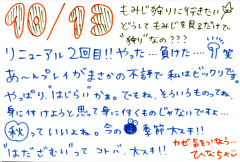 10/13
もみじ狩りに行きたい
どうしてもみじを見るだけで、
"狩り"なの???
リニューアル2回目!!やった…負けた…笑
あ〜んプレイがまさかの不評で私はビックリです。
やっぱり"はじらい"かぁ。でもね、そういうものってね、
身に付けようと思って身に付くものじゃないですよ…
秋っていいよね。今の季節大スキ!!
"はだざむい"って コトバ、大スキ!!
カゼ気をつけなっ…
ひなちゃん